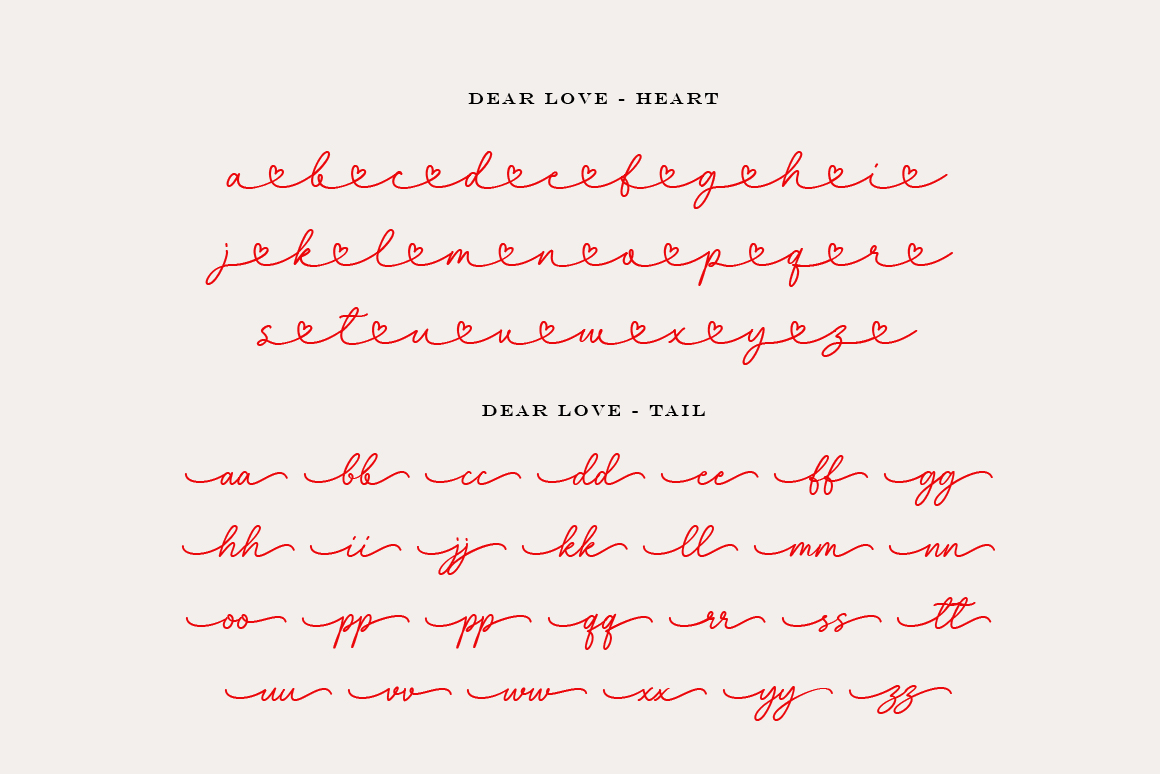 DEAR LOVE - HEART
a b c d e f g h i
j k l m n o p q r
s t u v w x y z
DEAR LOVE - TAIL
aa bb cc dd ee ff gg
hh ii jj kk ll mm nn
oo pp pp qq rr ss tt
uu vv ww xx yy zz